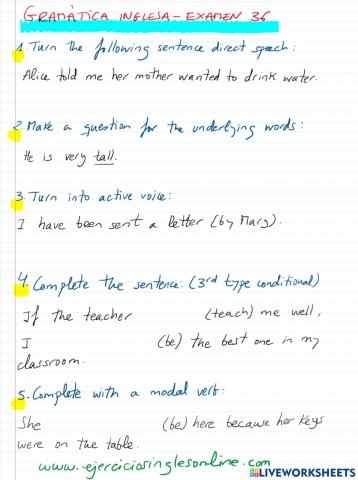 GRAMÁTICA INGLESA - EXAMEN 36
1. Turn the following sentence direct speech:
Alice told me her mother wanted to drink water.
2. Make a question for the underlying words:
He is very tall.
3. Turn into active voice:
I have been sent a letter (by Mary).
4. Complete the sentence: (3rd type conditional)
If the teacher (teach) me well,
I (be) the best one in my
classroom.
5. Complete with a modal verb:
She (be) here because her keys
were on the table.
www.ejerciciosinglesonline.com
LIVEWORKSHEETS